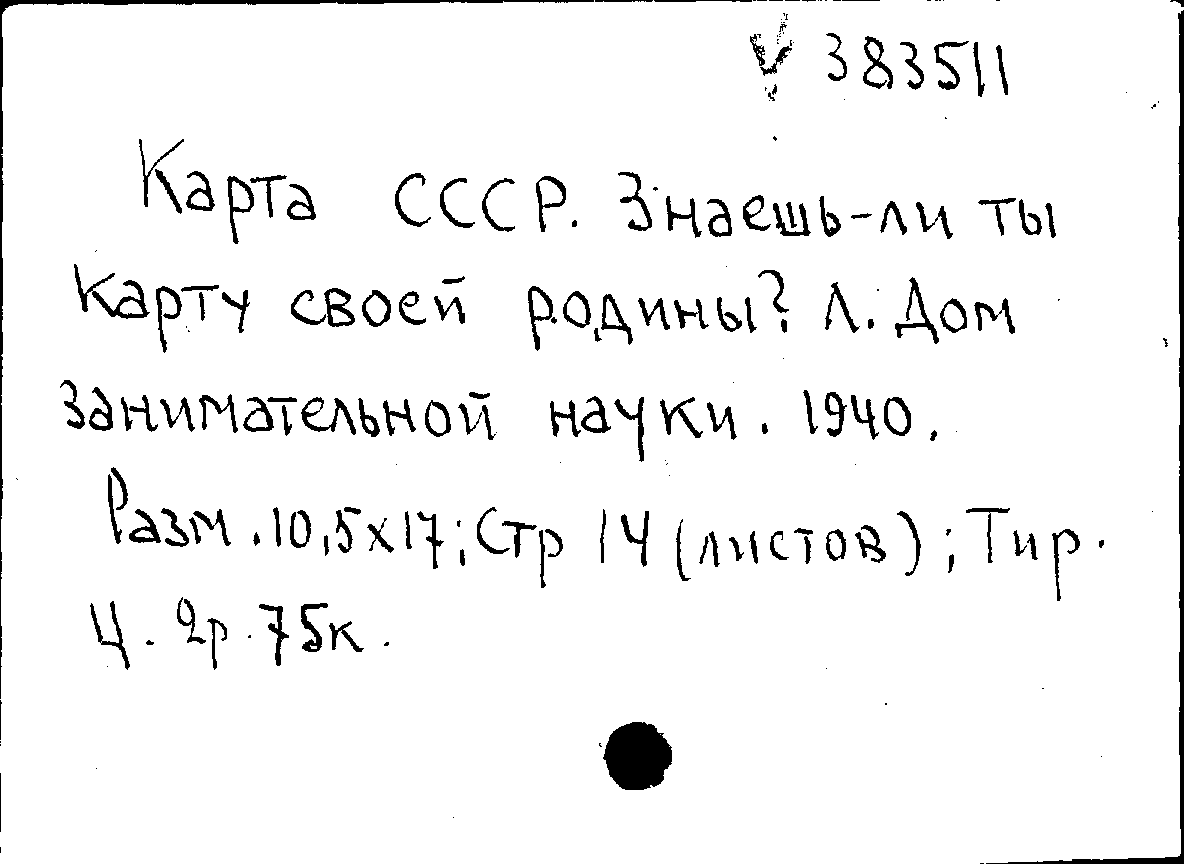 V 383511
Карта СССР. Знаешь-ли ты
карту своей родины? Л. Дом
занимательной науки. 1940.
Разм. 10,5х17; Стр 14 (листов); Тир.
Ц. 2р. 75к.